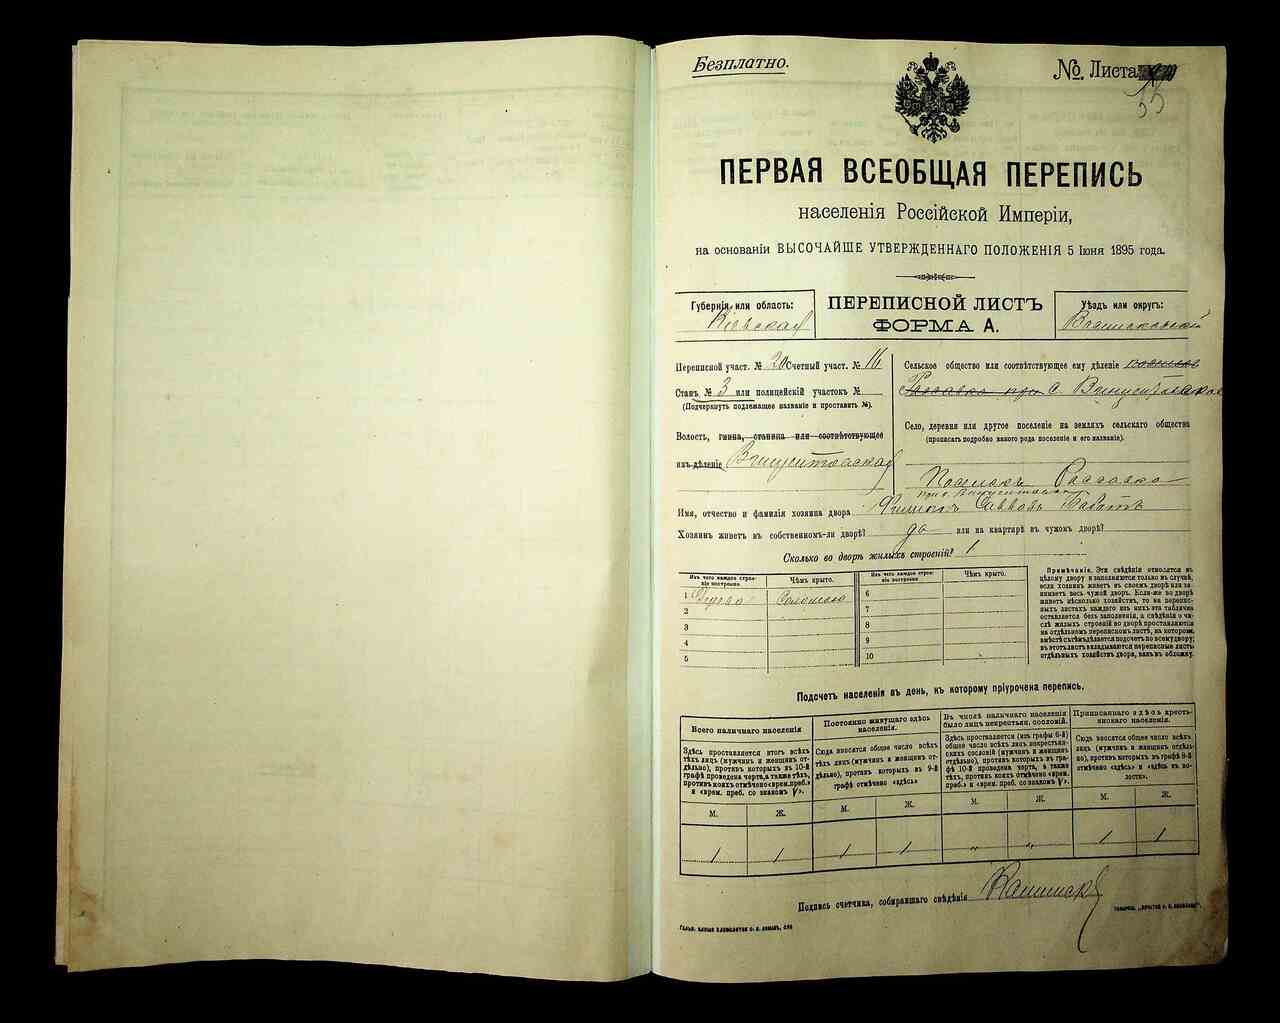 Безплатно.
№. Листа
35
ПЕРВАЯ ВСЕОБЩАЯ ПЕРЕПИСЬ
населенія Россійской Имперіи,
на основаніи ВЫСОЧАЙШЕ УТВЕРЖДЕННАГО ПОЛОЖЕНІЯ 5 Іюня 1895 года.
Губернія или область:
Кіевская
ПЕРЕПИСНОЙ ЛИСТЪ
ФОРМА А.
Уѣздъ или округъ:
Переписной участ. № 20 Счетный участ. № 16
Станъ № 3 или полицейскій участокъ №
(Подчеркнуть подлежащее названіе и проставить №).
Волость, гмина, станица или соотвѣтствующее
имъ дѣленіе
Сельское общество или соотвѣтствующее ему дѣленіе
при с.
Село, деревня или другое поселеніе на земляхъ сельскаго общества
(прописать подробно какого рода поселеніе и его названіе).
Поселокъ Рассавка
при с.
Имя, отчество и фамилія хозяина двора Филиппъ Саввовъ
Хозяинъ живетъ въ собственномъ-ли дворѣ? да или на квартирѣ въ чужомъ дворѣ?
Сколько во дворѣ жилыхъ строеній? 1
Изъ чего каждое строеніе построено.
Чѣмъ крыто.
Изъ чего каждое строеніе построено.
Чѣмъ крыто.
1 Дерева Соломою
2
3
4
5
6
7
8
9
10
Примѣчаніе. Эти свѣдѣнія относятся къ
цѣлому двору и заполняются только въ случаѣ,
если хозяинъ живетъ въ своемъ дворѣ или занимаетъ весь чужой дворъ. Если-же во дворѣ
живетъ нѣсколько хозяйствъ, то на переписныхъ листахъ каждаго изъ нихъ эта табличка
оставляется безъ заполненія, а свѣдѣнія о числѣ жилыхъ строеній во дворѣ проставляются
на отдѣльномъ переписномъ листѣ, на которомъ
вмѣстѣ съ тѣмъ дѣлается подсчетъ по всему двору;
въ этотъ листъ вкладываются переписные листы
отдѣльныхъ хозяйствъ двора, какъ въ обложку.
Подсчетъ населенія въ день, къ которому пріурочена перепись.
Всего наличнаго населенія
Здѣсь проставляется итогъ всѣхъ
тѣхъ лицъ (мужчинъ и женщинъ отдѣльно), противъ которыхъ въ 10-й
графѣ проведена черта, а также тѣхъ,
противъ коихъ отмѣчено «врем. преб.»
и «врем. преб. со знакомъ V».
Постоянно живущаго здѣсь
населенія.
Сюда вносятся общее число всѣхъ
тѣхъ лицъ (мужчинъ и женщинъ отдѣльно), противъ которыхъ въ 9-й
графѣ отмѣчено «здѣсь»
Въ числѣ наличнаго населенія
было лицъ некрестьян. сословій.
Здѣсь проставляется (изъ графы 6-й)
общее число всѣхъ лицъ некрестьянскихъ сословій (мужчинъ и женщинъ
отдѣльно), противъ которыхъ въ графѣ 10-й проведена черта, а также
тѣхъ, противъ коихъ отмѣчено «врем.
преб.» и «врем. преб. со знакомъ V».
Приписаннаго здѣсь крестьянскаго населенія.
Сюда вносятся общее число всѣхъ
лицъ (мужчинъ и женщинъ отдѣльно), противъ которыхъ въ графѣ 8-й
отмѣчено «здѣсь» и «здѣсь въ волости».
М. Ж. М. Ж. М. Ж. М. Ж.
1 1 1 1 " " 1 1
Подпись счетчика, собиравшаго свѣдѣнія